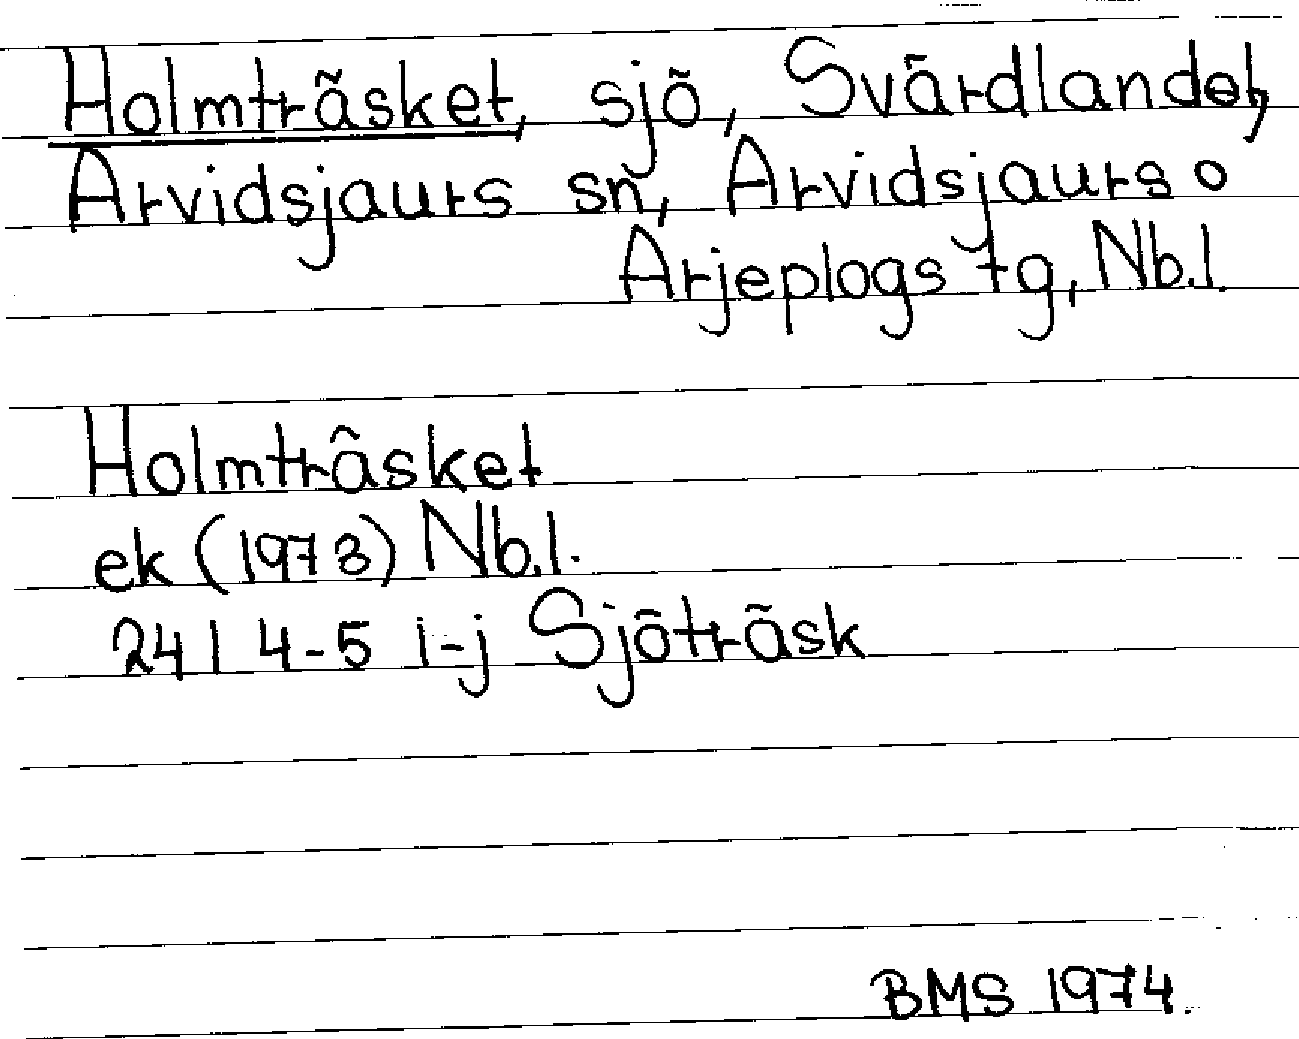 Holmträsket, sjö, Svärdlandet,
Arvidsjaurs sn, Arvidsjaurs o
Arjeplogs tg, Nb.l.
Holmträsket
ek (1973) Nb.l.
24 I 4-5 i-j Sjöträsk
BMS 1974.